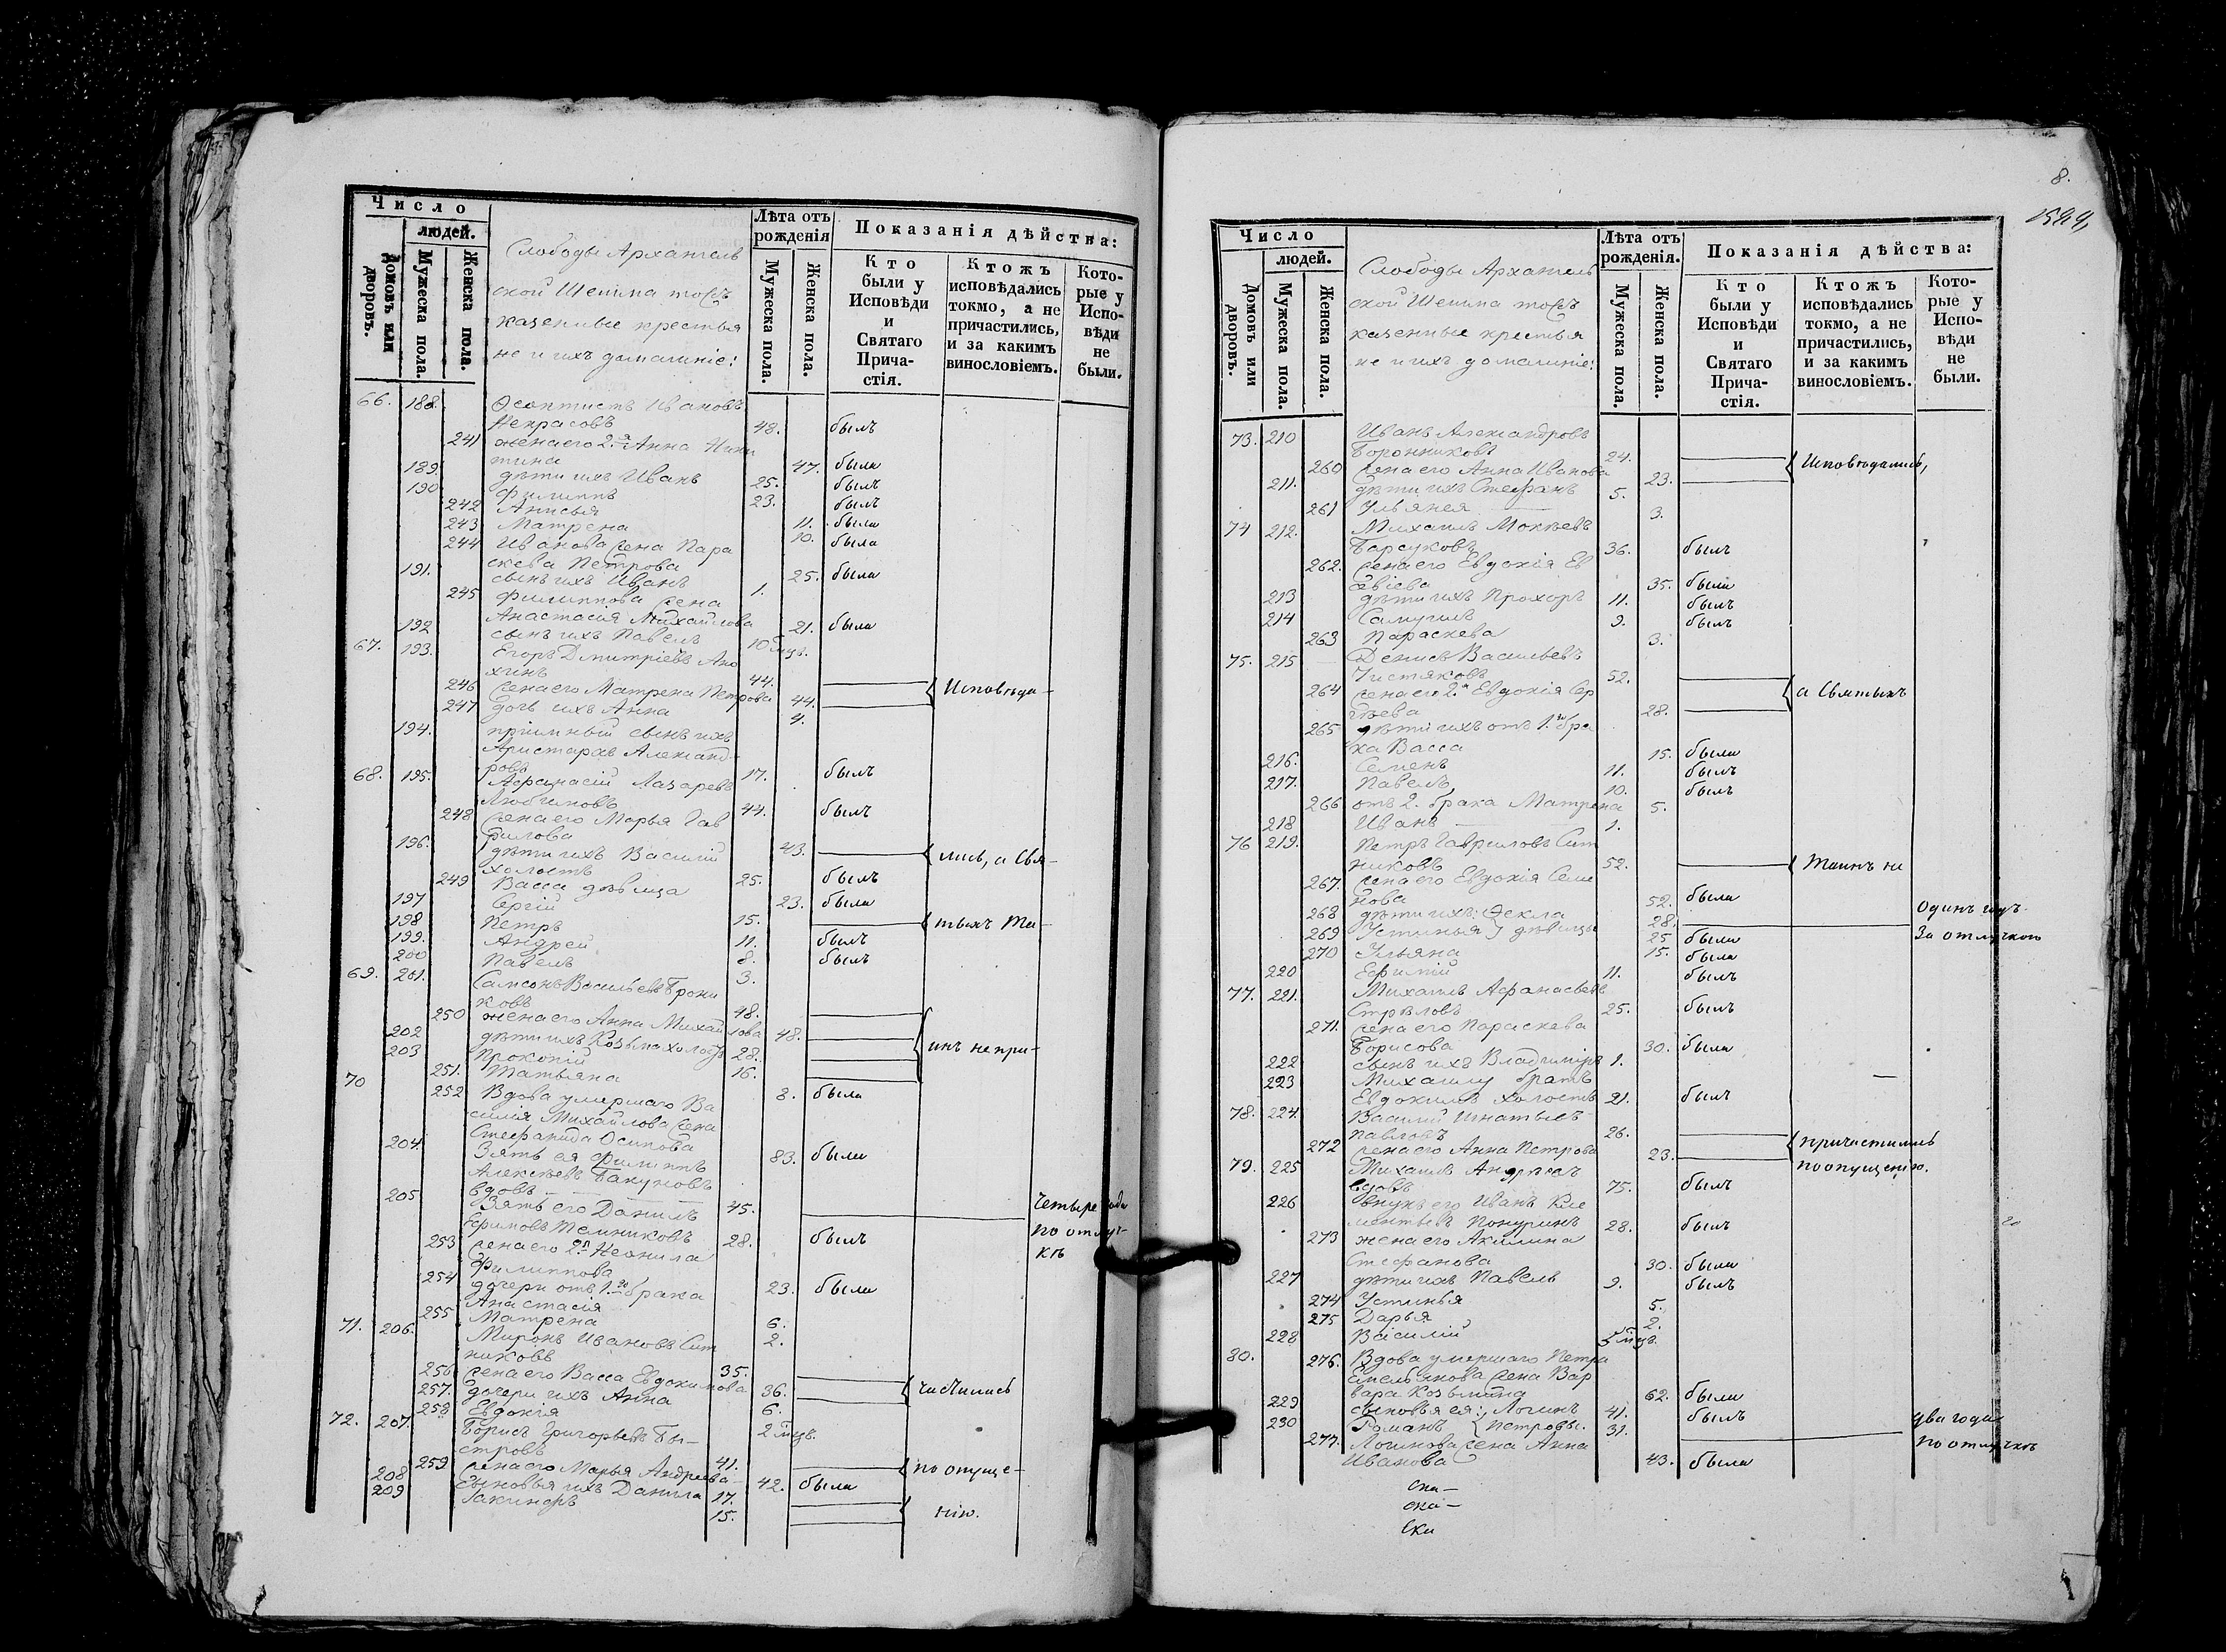 Число
людей.
Домовъ или дворовъ.
Мужеска пола.
Женска пола.
Слободы Архангель
ской Шепина тожъ
казенные крестья
не и ихъ домашніе:
Лѣта отъ рожденія
Мужеска пола.
Женска пола.
Показанія дѣйства:
Кто были у Исповѣди и Святаго Прича- стія.
Ктожъ исповѣдались токмо, а не причастились, и за какимъ винословіемъ.
Кото- рые у Испо- вѣди не были.
66. 188. Ѳеоктистъ Ивановъ
Некрасовъ 48. былъ
241 жена его 2.я Анна Ники
тина 47. была
189. дѣти ихъ Иванъ 25. былъ
190 Филиппъ 23. былъ
242 Анисья 11. была
243 Матрена 10. была
244 Иванова жена Пара
скева Петрова 25. была
191. сынъ ихъ Иванъ 1.
245 Филиппова жена
Анастасія Михайлова 21. была
192 сынъ ихъ Павелъ 10 мцъ.
67. 193. Егоръ Дмитріевъ Ано
хинъ 44.
246 жена его Матрена Петрова 44. Исповѣда-
247 дочь ихъ Анна 4.
194. пріимный сынъ ихъ
Аристархъ Александ-
ровъ 17. былъ
68. 195. Афанасій Лазаревъ
Любимовъ 44. былъ
248 жена его Марья Гав
рилова 43. лись, а Свя-
196. дѣти ихъ Василій
холостъ 25. былъ
249 Васса дѣвица 23. была
197 Сергій 15. тыхъ Та-
198 Петръ 11. былъ
199. Андрей 8. былъ
200 Павелъ 3.
69. 201. Самсонъ Васильевъ Брони
ковъ 48.
250 жена его Анна Михайлова 48.
202 дѣти ихъ Козьма холостъ 28. инъ не при-
203 Прокопій 16.
251. Татьяна 8. была
70 252 Вдова умершаго Ва
силія Михайлова жена
Стефанида Осипова 83. была
204. Зять ея Филиппъ
Алексѣевъ Бакуновъ
вдовъ 45. Четыре года
205 Зять его Данилъ по отлуч-
Ефимовъ Темниковъ 28. былъ кѣ
253 жена его 2я Неонила
Филиппова 23. была
254 дочери отъ 1.го брака
Анастасія 6.
255 Матрена 2.
71. 206. Миронъ Ивановъ Сит
никовъ 35.
256 жена его Васса Евдокимова 36. частились
257. дочери ихъ Анна 6.
258 Евдокія 2 мцъ.
72. 207. Борисъ Григорьевъ Бы-
стровъ 41. по опуще-
259 жена его Марья Андреева 42. была
208 сыновья ихъ Данила 17. нію.
209 Іакинфъ 15.
8.
1544,
Число
людей.
Домовъ или дворовъ.
Мужеска пола.
Женска пола.
Слободы Архангель
ской Шепина тожъ
казенные крестья
не и ихъ домашніе:
Лѣта отъ рожденія.
Мужеска пола.
Женска пола.
Показанія дѣйства:
Кто были у Исповѣди и Святаго Прича- стія.
Ктожъ исповѣдались токмо, а не причастились, и за какимъ винословіемъ.
Кото- рые у Испо- вѣди не были.
73. 210 Иванъ Александровъ
Боронниковъ 24. Исповѣдались,
260 жена его Анна Иванова 23.
211. дѣти ихъ Стефанъ 5.
261 Ульянея 3.
74 212. Михаилъ Мокѣевъ
Барсуковъ 36. былъ
262. жена его Евдокія Ев
сѣвіева 35. была
213 дѣти ихъ Прохоръ 11. былъ
214 Самуилъ 9. былъ
263 Параскева 3.
75. 215 Денисъ Васильевъ
Чистяковъ 52. а Святыхъ
264 жена его 2я Евдокія Сер
гѣева 28.
265 дѣти ихъ отъ 1.го бра
ка Васса 15. была
216. Семенъ 11. былъ
217. Павелъ, 10. былъ
266 отъ 2. брака Матрена 5.
218 Иванъ 1.
76 219. Петръ Гавриловъ Сит
никовъ 52. Таинъ не
267. жена его Евдокія Семе
нова 52. была
268 дѣти ихъ: Ѳекла 28. Одинъ годъ
269 Устинья } дѣвицы 25 была За отлучкою
270 Ульяна 15. была
220 Ефимій 11. былъ
77. 221. Михаилъ Афанасьевъ
Стрѣловъ 25. былъ
271. жена его Параскева
Борисова 30. была
222 сынъ ихъ Владиміръ 1.
223 Михаилу братъ
Евдокимъ холостъ 21. былъ
78. 224. Василій Игнатьевъ
Павловъ 26. причастились
272 жена его Анна Петрова 23. по опущенію.
79. 225 Михаилъ Андреевъ
вдовъ 75. былъ
226 внукъ его Иванъ Кле
ментьевъ Понуринъ 28. былъ
273 жена его Акилина
Стефанова 30. была
227 дѣти ихъ Павелъ 9. былъ
274 Устинья 5.
275 Дарья 2.
228 Василій 5 мцъ.
80. 276. Вдова умершаго Петра
Емельянова жена Вар
вара Козьмина 62. была
229 сыновья ея: Логинъ 41. былъ два года
230 Романъ } Петровы. 31. по отлучкѣ
277. Логинова жена Анна
Иванова 43. была
ска-
ска-
ски